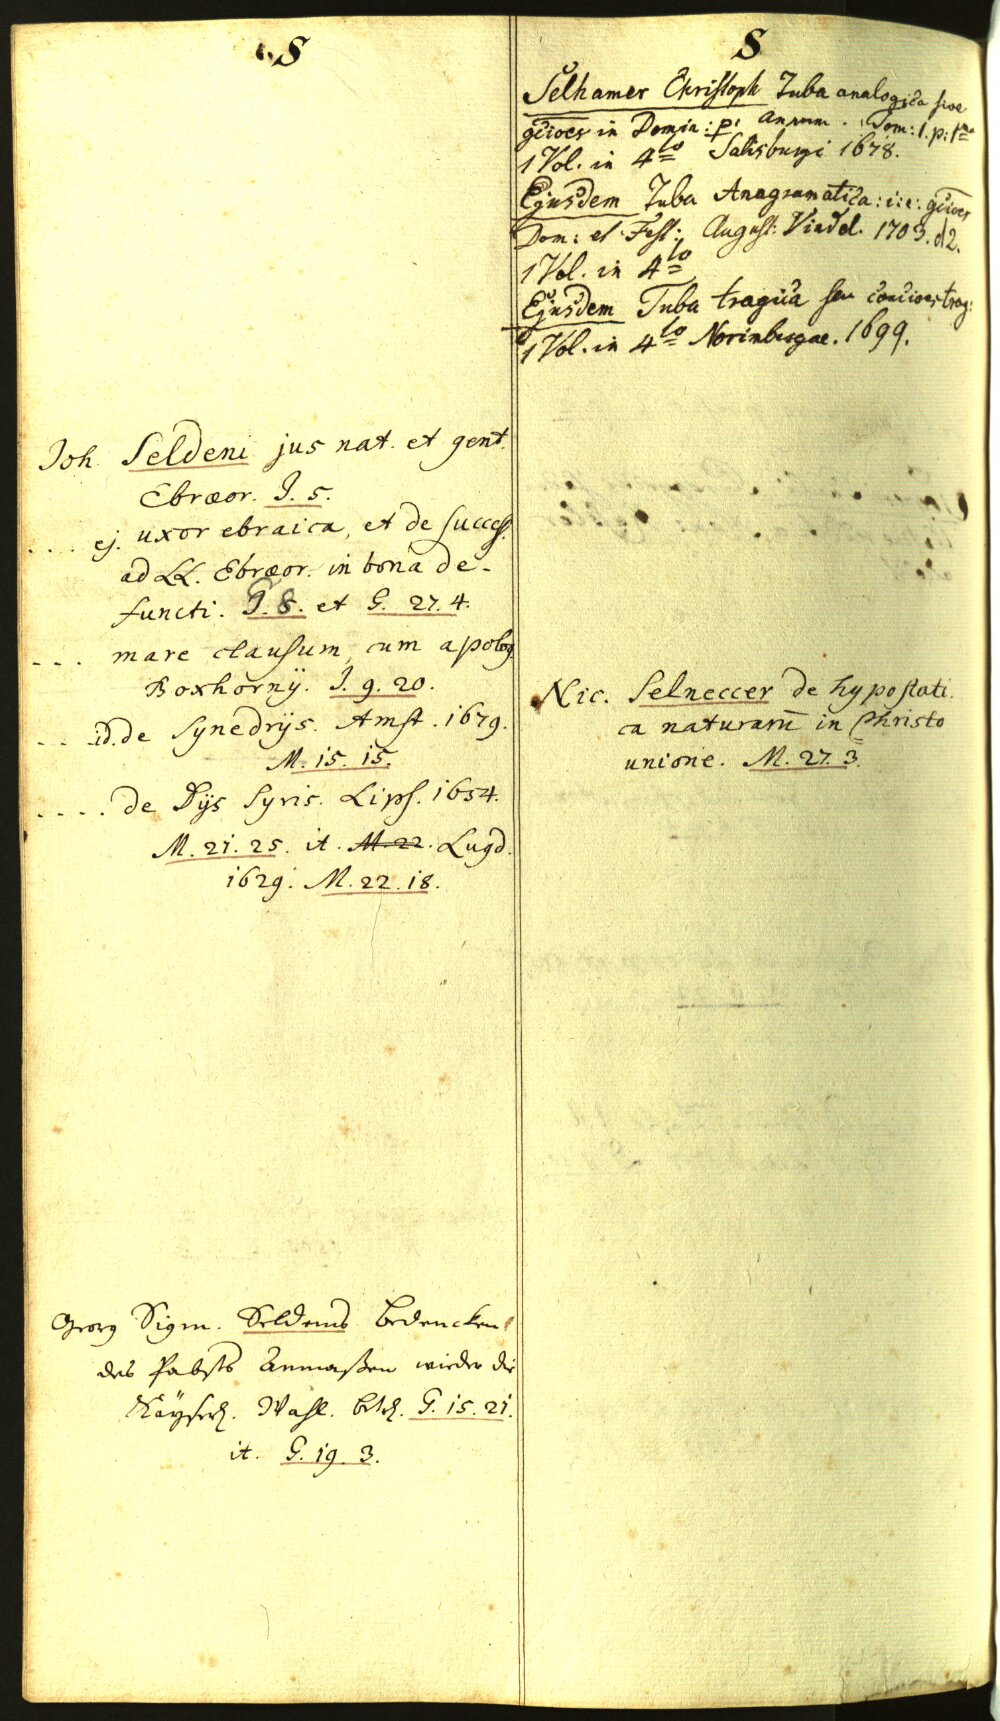 S
Joh. Seldeni jus nat. et gent.
Ebræor. J. 5.
.... ej. uxor ebraica, et de success.
ad LL. Ebræor. in bona de-
functi. J. 8. et G. 27. 4.
... mare clausum, cum apolog.
Boxhornij. J. 9. 20.
... id. de Synedrijs. Amst. 1679.
M. 15. 15.
.... de Dijs Syris. Lips. 1654.
M. 21. 25. it. M. 22. Lugd.
1629. M. 22. 18.
Georg Sigm. Seldens Bedencken
des Pabsts Anmaßen wieder die
Käyserl. Wahl. betr. G. 15. 21.
it. G. 19. 3.
S
Selhamer Christoph Tuba analogica sive
gcioes in Domin: p: annum. Tom: 1. p: 1ma
1 Vol. in 4to Salisburgi 1678.
Ejusdem Tuba Anagramatica: i: e: gcioes
Dom: et Fest: August: Vindel. 1703. d 2.
1 Vol. in 4to
Ejusdem Tuba tragica seu conciones trag:
1 Vol. in 4to Norimbergae. 1699.
Nic. Selneccer de hypostati
ca naturarū in Christo
unione. M. 27. 3.